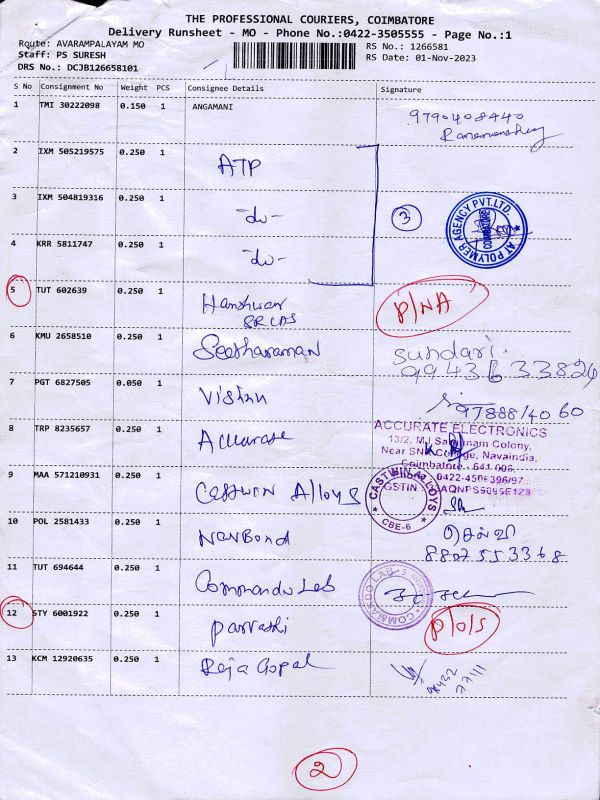 THE PROFESSIONAL COURIERS, COIMBATORE
Delivery Runsheet - MO - Phone No.:0422-3505555 - Page No.:1
Route: AVARAMPALAYAM MO
RS No.: 1266581
Staff: PS SURESH
RS Date: 01-Nov-2023
DRS No.: DCJB126658101
S No Consignment No Weight PCS Consignee Details Signature
1 TMI 30222098 0.150 1 ANGAMANI 9790408440
2 IXM 505219575 0.250 1 ATP
3 IXM 504819316 0.250 1 -do- 3
AT POLYMER AGENCY PVT.LTD. COIMBATORE
4 KRR 5811747 0.250 1 -do-
5 TUT 602639 0.250 1 P/NA
SRCAS
6 KMU 2658510 0.250 1 Seetharaman sundari.
99436 33824
7 PGT 6827505 0.050 1 Vishnu 97888 14060
8 TRP 8235657 0.250 1 Accurate
ACCURATE ELECTRONICS
Colony,
Near SNR College, Navaindia,
Coimbatore - 641 006.
9 MAA 571210931 0.250 1 Castwin Alloys
CASTWIN ALLOYS CBE-6
GSTIN
10 POL 2581433 0.250 1 NavBond செல்வி
8807553368
11 TUT 694644 0.250 1 Commando Lab
COMMANDO LAB
12 STY 6001922 0.250 1 Parvathi P/O/S
13 KCM 12920635 0.250 1 Raja Gopal
98432
77111
2